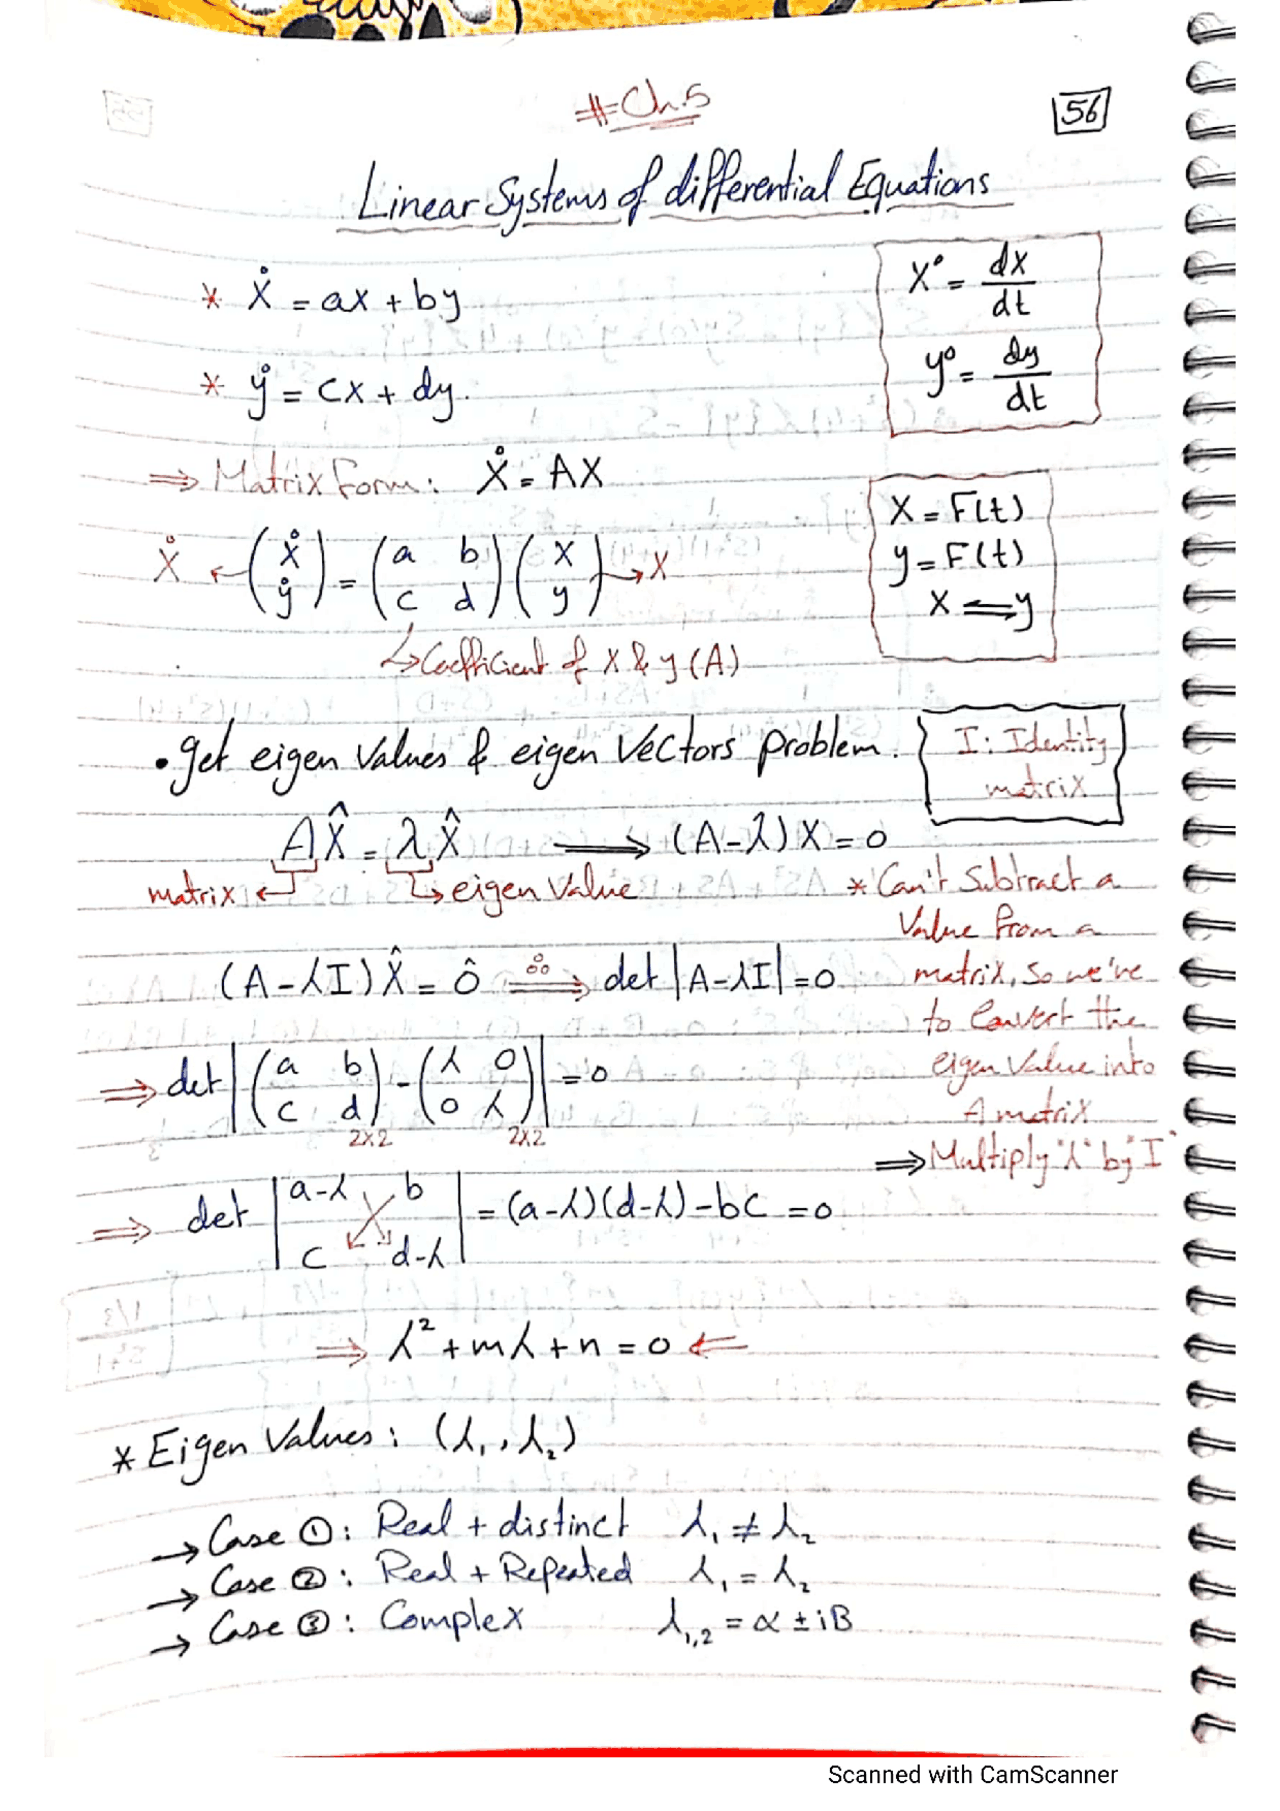 #Ch.5
56
Linear Systems of differential Equations
* ẋ = ax + by
* ẏ = cx + dy.
x° = dx/dt
y° = dy/dt
⇒ Matrix Form: Ẋ = AX
Ẋ ← (ẋ ẏ) = (a b c d) (x y) → X
↳ Coefficient of x & y (A)
X = F(t)
y = F(t)
X ⇌ y
• get eigen values & eigen vectors problem.
I: Identity
matrix
AX̂ = λX̂ ⟹ (A-λ)X = 0
matrix ← ↳ eigen value
* Can't Subtract a
Value from a
matrix, so we've
to Convert the
eigen value into
A matrix
⇒ Multiply "λ" by "I"
(A-λI)X̂ = ô ⟹ det |A-λI| = 0
⇒ det |(a b c d) - (λ 0 0 λ)| = 0
2x2 2x2
⇒ det |a-λ b c d-λ| = (a-λ)(d-λ) - bc = 0
⇒ λ² + mλ + n = 0 ⇐
* Eigen Values: (λ₁, λ₂)
→ Case ①: Real + distinct λ₁ ≠ λ₂
→ Case ②: Real + Repeated λ₁ = λ₂
→ Case ③: Complex λ₁,₂ = α ± iB
Scanned with CamScanner